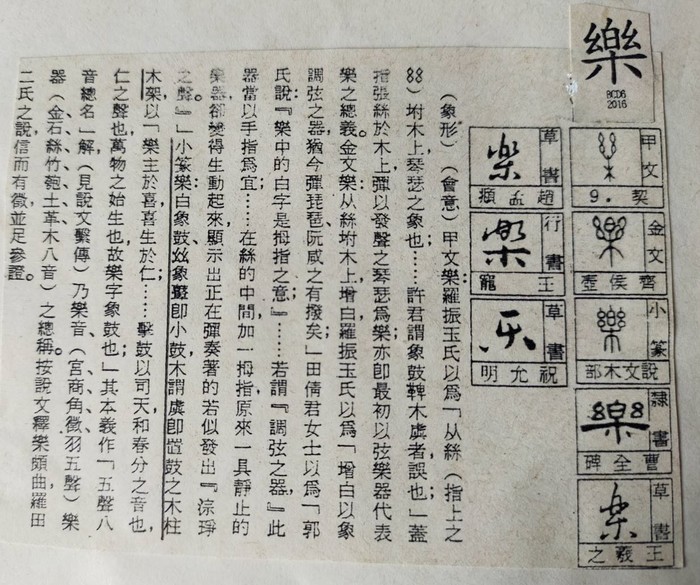 樂
BCD6
2016
甲文
契．9
金文
齊侯壺
小篆
說文木部
隸書
曹全碑
草書
王羲之
草書
趙孟頫
行書
王寵
草書
祝允明
（象形）（會意）甲文樂羅振玉氏以爲「从絲（指上之
）坿木上，琴瑟之象也；……許君謂象鼓鞞木虡者，誤也」蓋
指張絲於木上，彈以發聲之琴瑟爲樂；亦即最初以弦樂器代表
樂之總義。金文樂从絲坿木上，增白；羅振玉氏以爲「增白以象
調弦之器，猶今彈琵琶、阮咸之有撥矣」田倩君女士以爲「郭
氏說『樂中的白字是拇指之意』……若謂『調弦之器』此
器當以手指爲宜……在絲的中間加一拇指，原來一具靜止的
樂器卻變得生動起來，顯示出正在彈奏著的若似發出『淙琤
之聲』」小篆樂白象鼓，𢆶象鼙即小鼓，木謂虡即置鼓之木柱
木架，以「樂主於喜，喜生於仁……擊鼓以司天和春分之音也，
仁之聲也，萬物之始生也，故樂字象鼓也」；其本義作「五聲八
音總名」解（見說文繫傳）乃樂音（宮、商、角、徵、羽五聲）樂
器（金、石、絲、竹、匏、土、革、木八音）之總稱。按說文釋樂頗曲，羅田
二氏之說，信而有徵，並足參證。